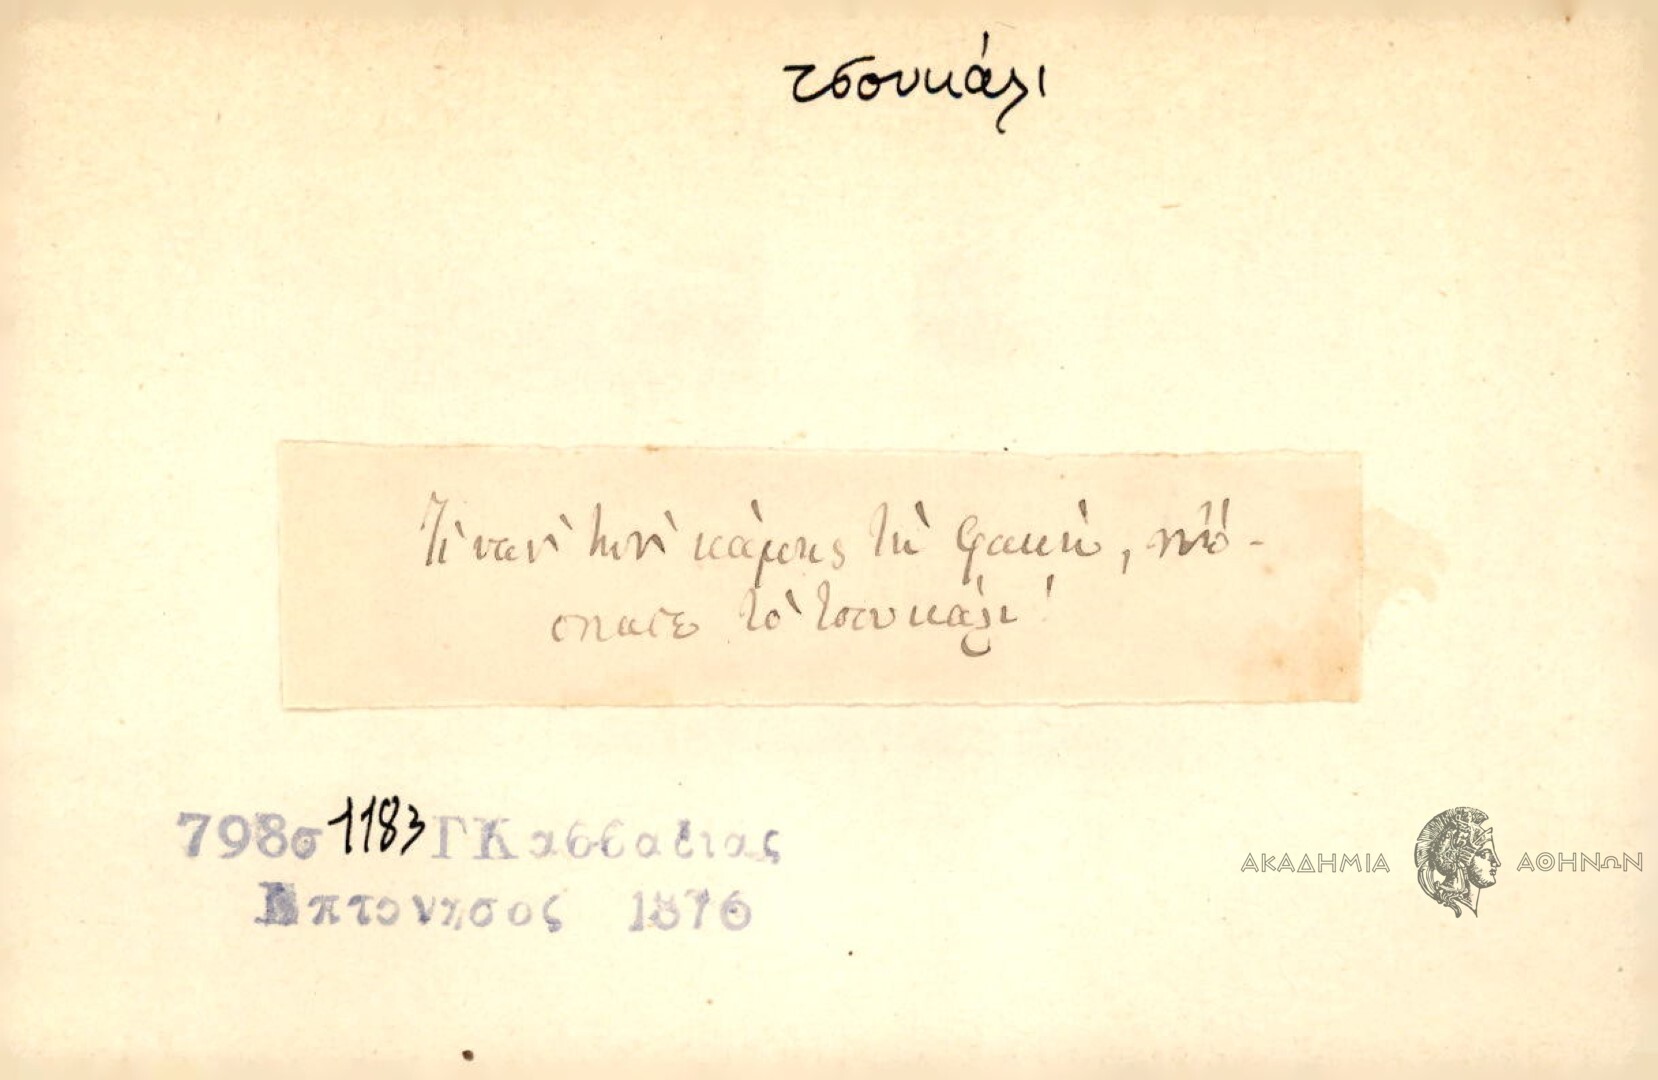 τσουκάλι
Τὶ νανὶ τὴν κάμῃς τὴ φακὴ, πὤ-
σπασε τὸ τσουκάλι!
798σ 1183 Γ Καββαδιας
Επτονησος 1876
ΑΚΑΔΗΜΙΑ ΑΘΗΝΩΝ